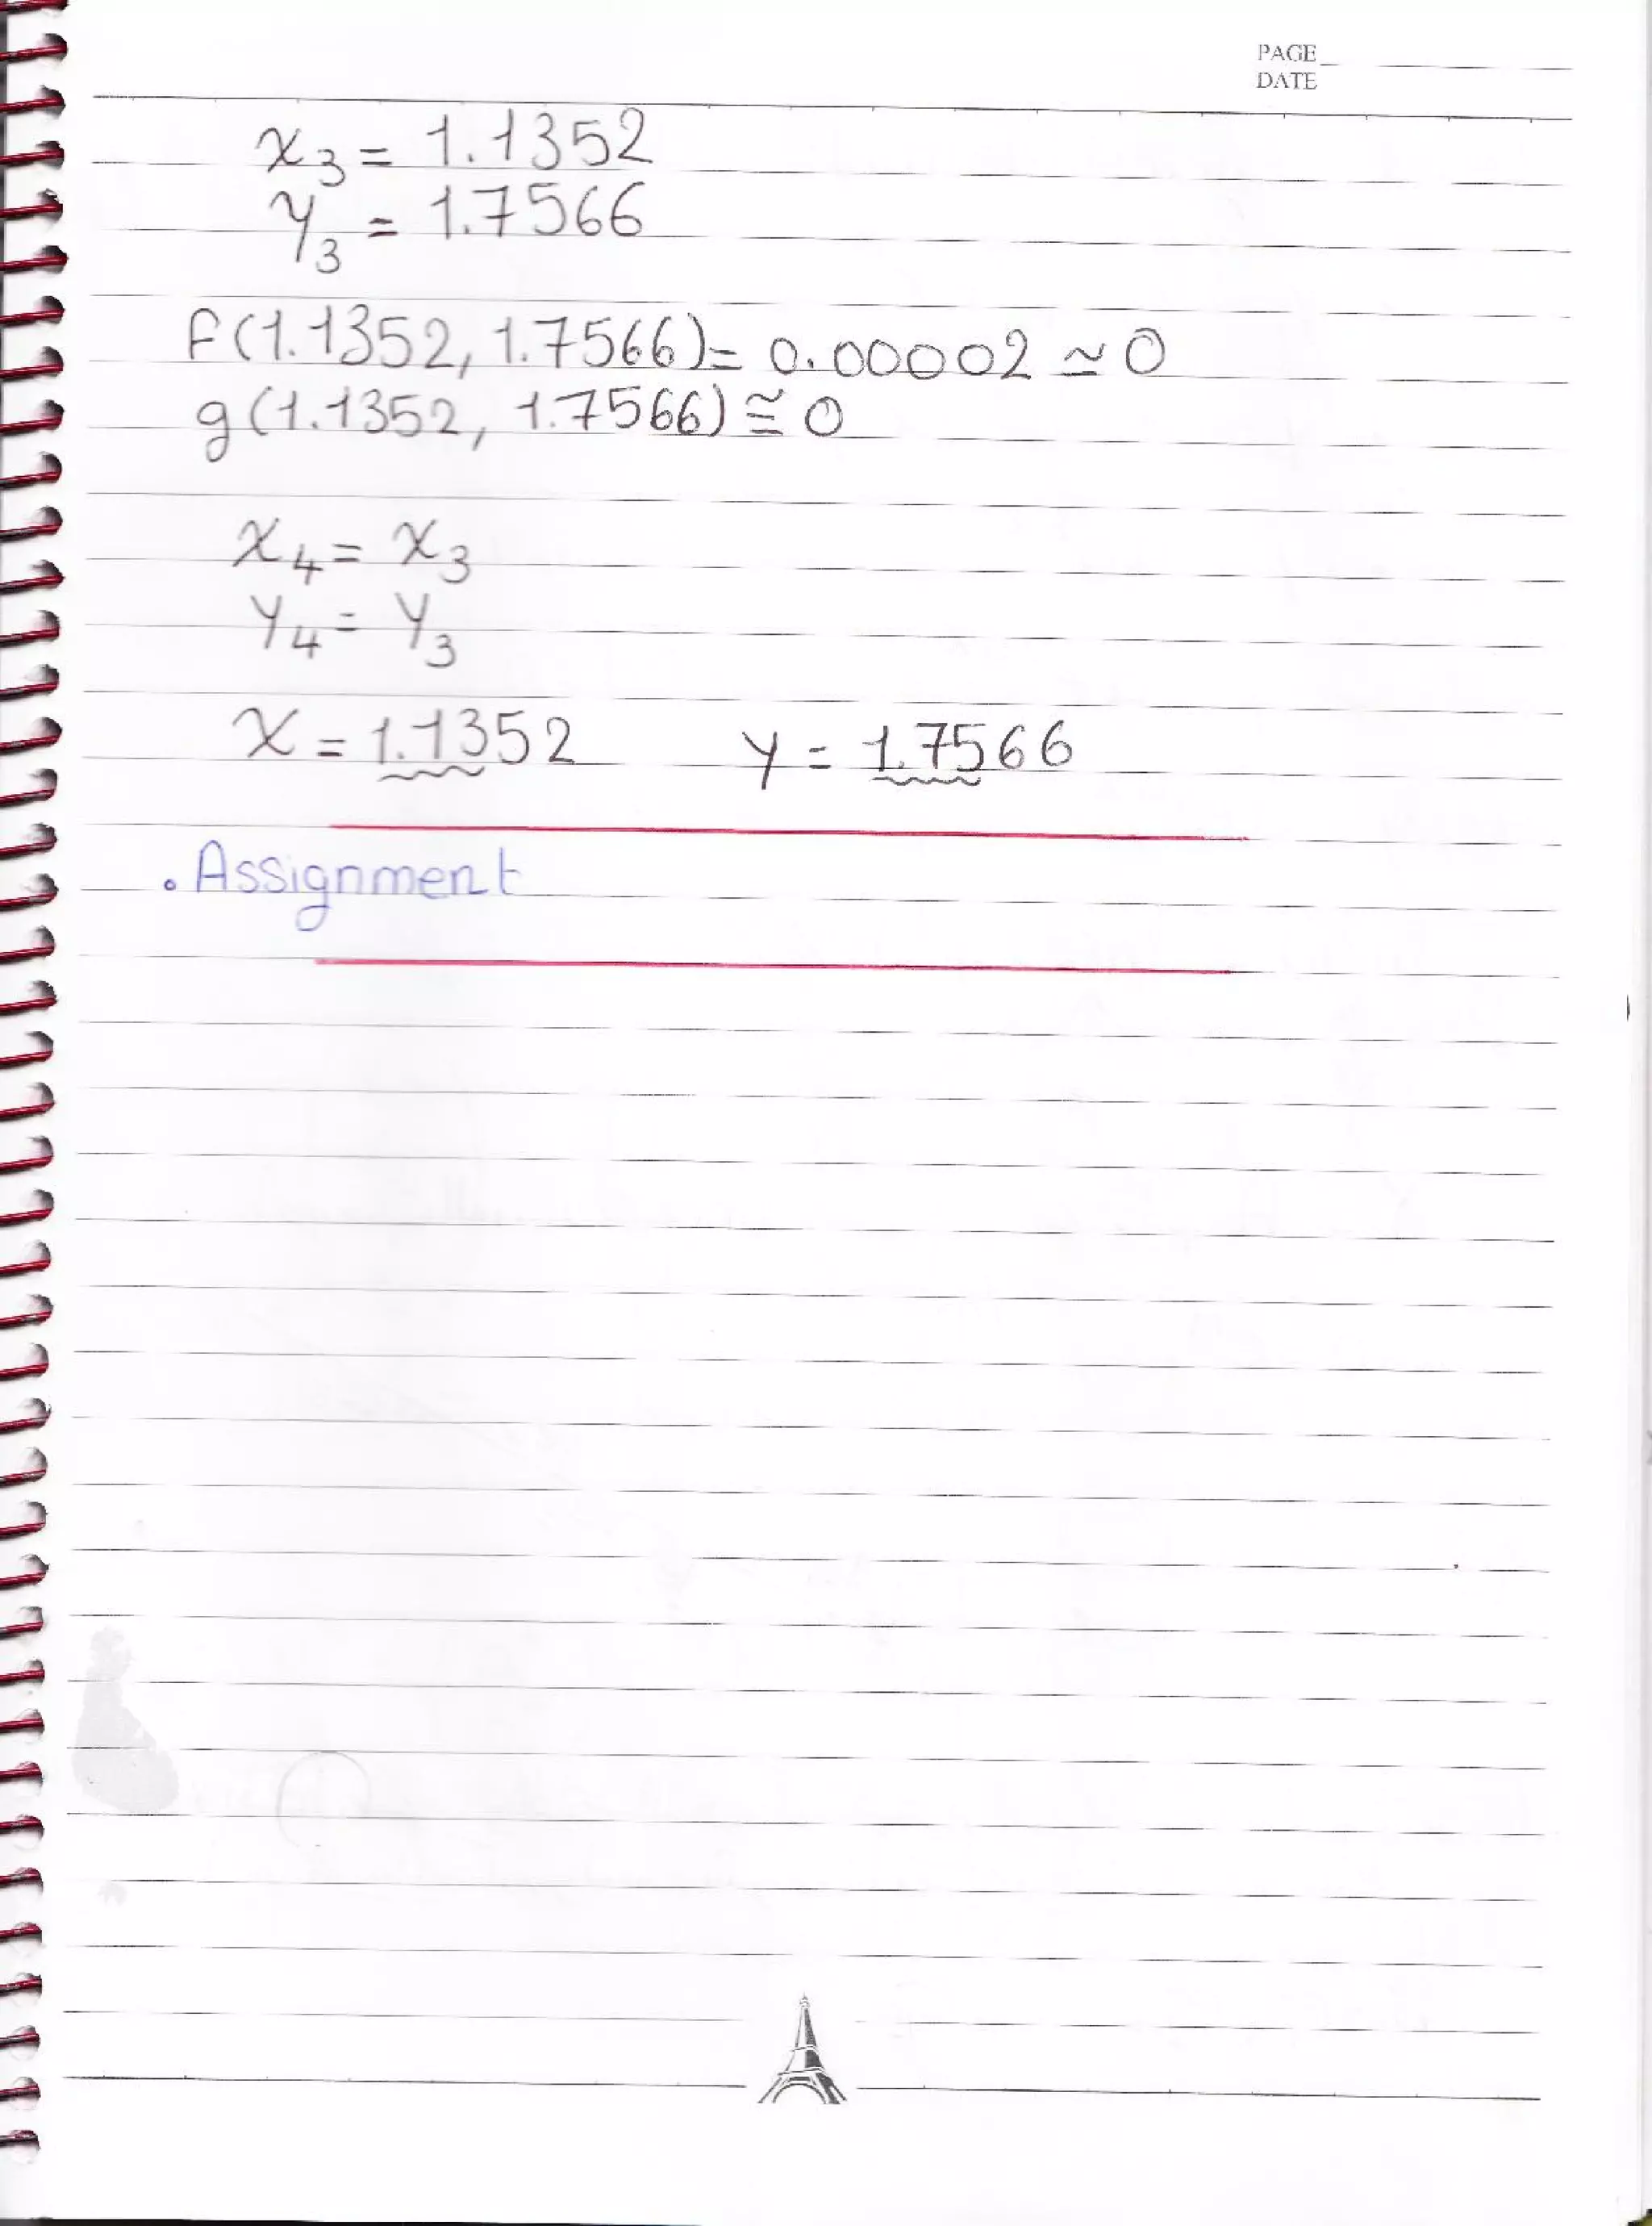 PAGE
DATE
x₃ = 1.1352
y₃ = 1.7566
F(1.1352, 1.7566) = 0.00002 ≃ 0
g(1.1352, 1.7566) ≅ 0
x₄ = x₃
y₄ = y₃
x = 1.1352 y = 1.7566
. Assignment